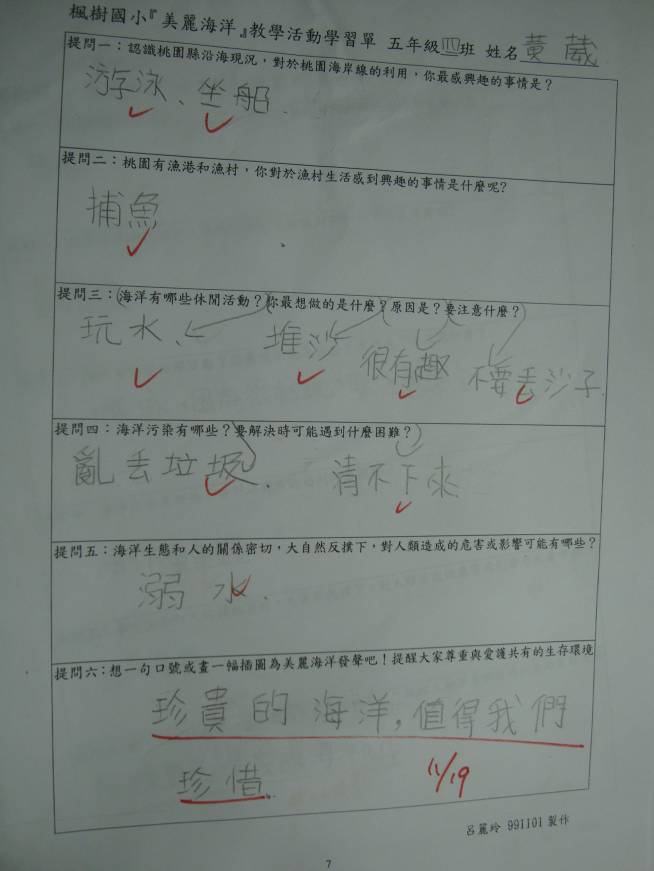 楓樹國小『美麗海洋』教學活動學習單 五年級四班 姓名黃葳
提問一：認識桃園縣沿海現況，對於桃園海岸線的利用，你最感興趣的事情是？
游泳、坐船.
提問二：桃園有漁港和漁村，你對於漁村生活感到興趣的事情是什麼呢?
捕魚
提問三：海洋有哪些休閒活動？你最想做的是什麼？原因是？要注意什麼？
玩水、 堆沙 很有趣 不要丟沙子.
提問四：海洋污染有哪些？要解決時可能遇到什麼困難？
亂丟垃圾. 清不下來
提問五：海洋生態和人的關係密切，大自然反撲下，對人類造成的危害或影響可能有哪些？
溺水.
提問六：想一句口號或畫一幅插圖為美麗海洋發聲吧！提醒大家尊重與愛護共有的生存環境
珍貴的海洋，值得我們
珍惜.
11/19
呂麗玲 991101 製作
7